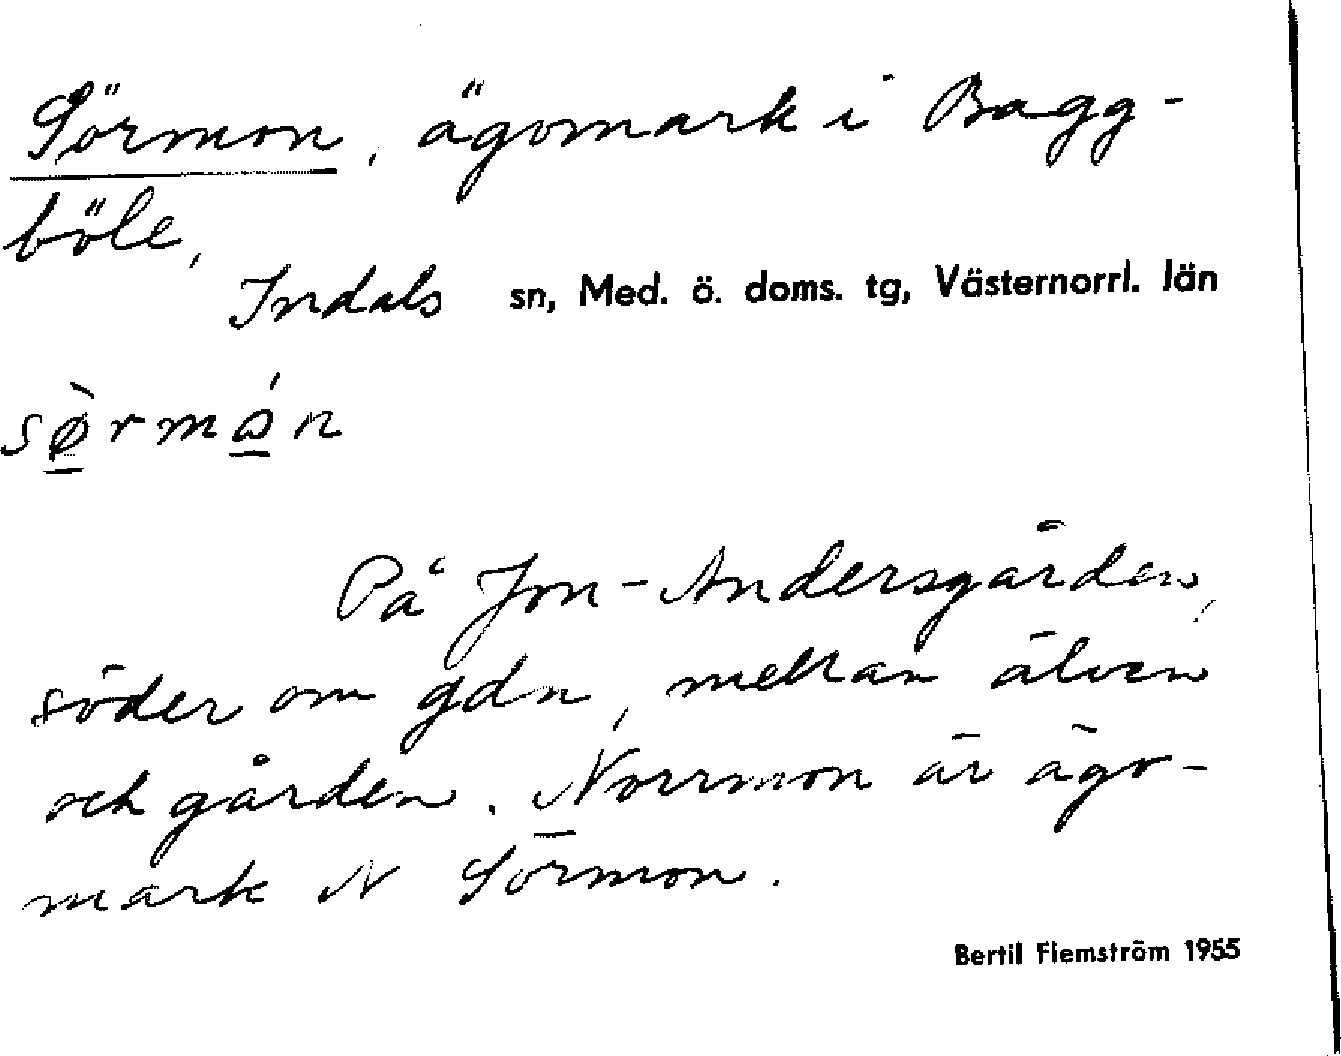 Sörmon, ägomark i Bagg-
böle,
Indals sn, Med. ö. doms. tg, Västernorrl. län
sø̱̀rmǫ́n
På Jon-Andersgården,
söder om gdn, mellan älven
och gården. Norrmon är ägo-
mark N Sörmon.
Bertil Flemström 1955